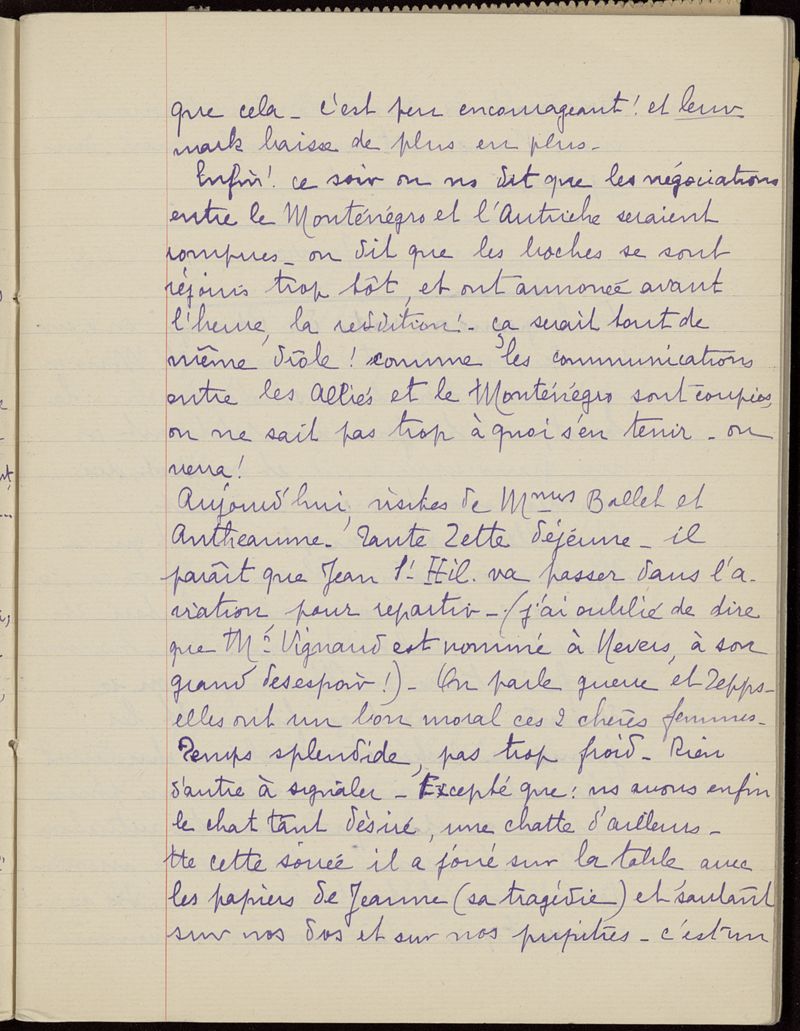 que cela - c'est peu encourageant! et leur
mark baisse de plus en plus -
Enfin! ce soir on ns dit que les négociations
entre le Monténégro et l'Autriche seraient
rompues - on dit que les boches se sont
réjouis trop tôt, et ont annoncé avant
l'heure, la reddition! - ça serait tout de
même drôle! comme les communications
entre les Alliés et le Monténégro sont coupées,
on ne sait pas trop à quoi s'en tenir - on
verra!
Aujourd'hui, visites de Mmes Ballet et
Antheaume - Tante Zette déjeune - il
paraît que Jean St Hil. va passer dans l'a-
viation pour repartir - (j'ai oublié de dire
que Mr Vignaud est nommé à Nevers, à son
grand desespoir!) - On parle guerre et Zepps -
elles ont un bon moral ces 2 chères femmes -
Temps splendide, pas trop froid - Rien
d'autre à signaler - Excepté que: ns avons enfin
le chat tant désiré, une chatte d'ailleurs -
tte cette soirée il a joué sur la table avec
les papiers de Jeanne (sa tragédie) et sautant
sur nos dos et sur nos pupitres - c'est un